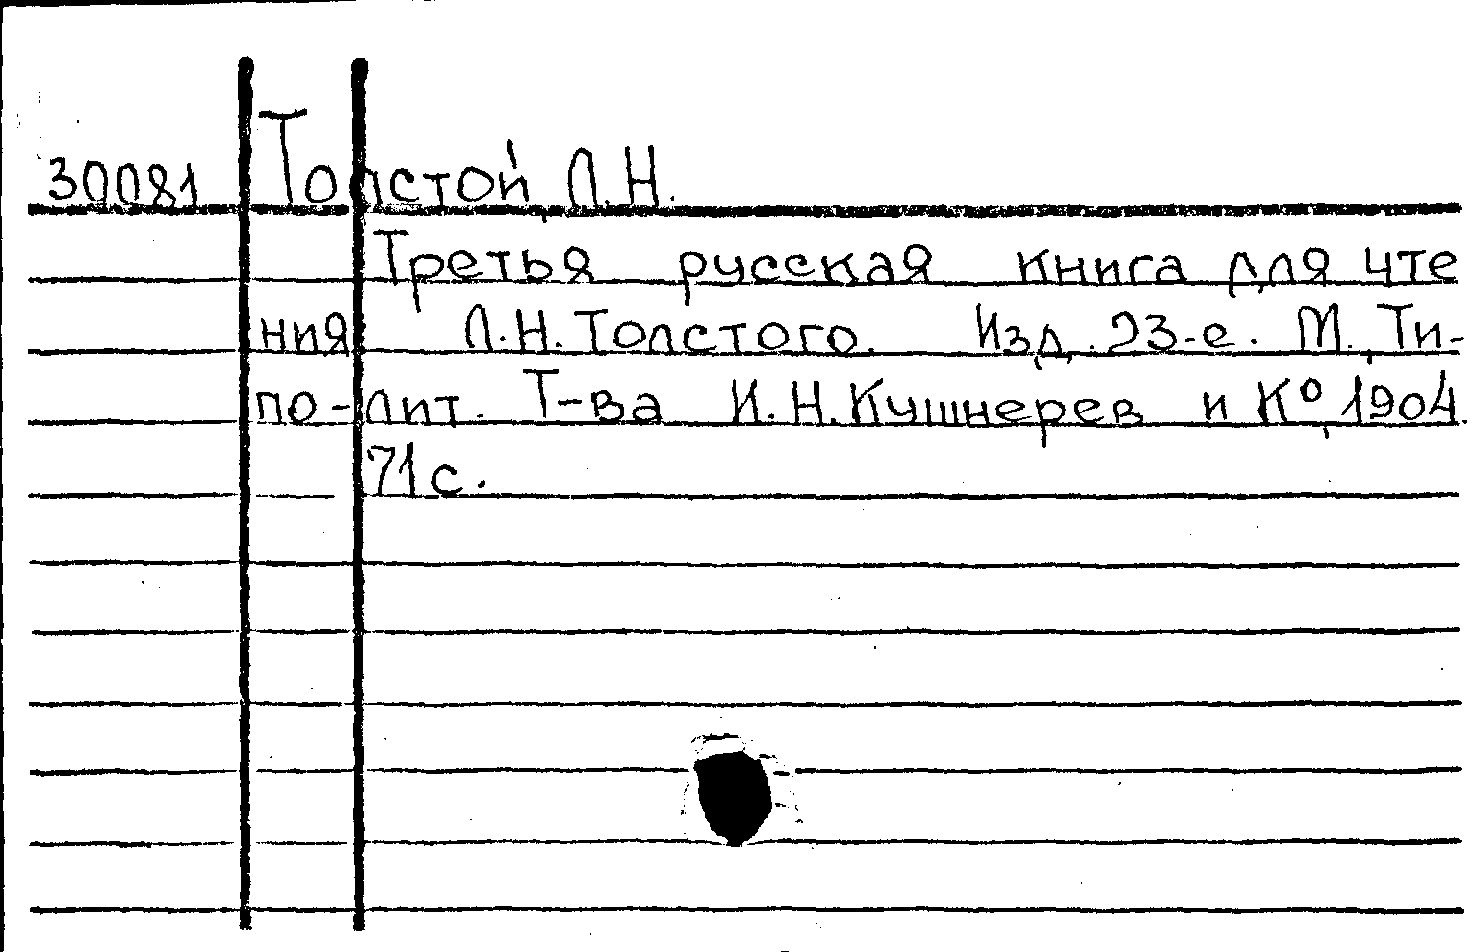 30081 Толстой Л.Н.
Третья русская книга для чте
ния Л.Н.Толстого. Изд.23-е. М., Ти-
по-лит. Т-ва И.Н.Кушнерев и К°, 1904.
71с.